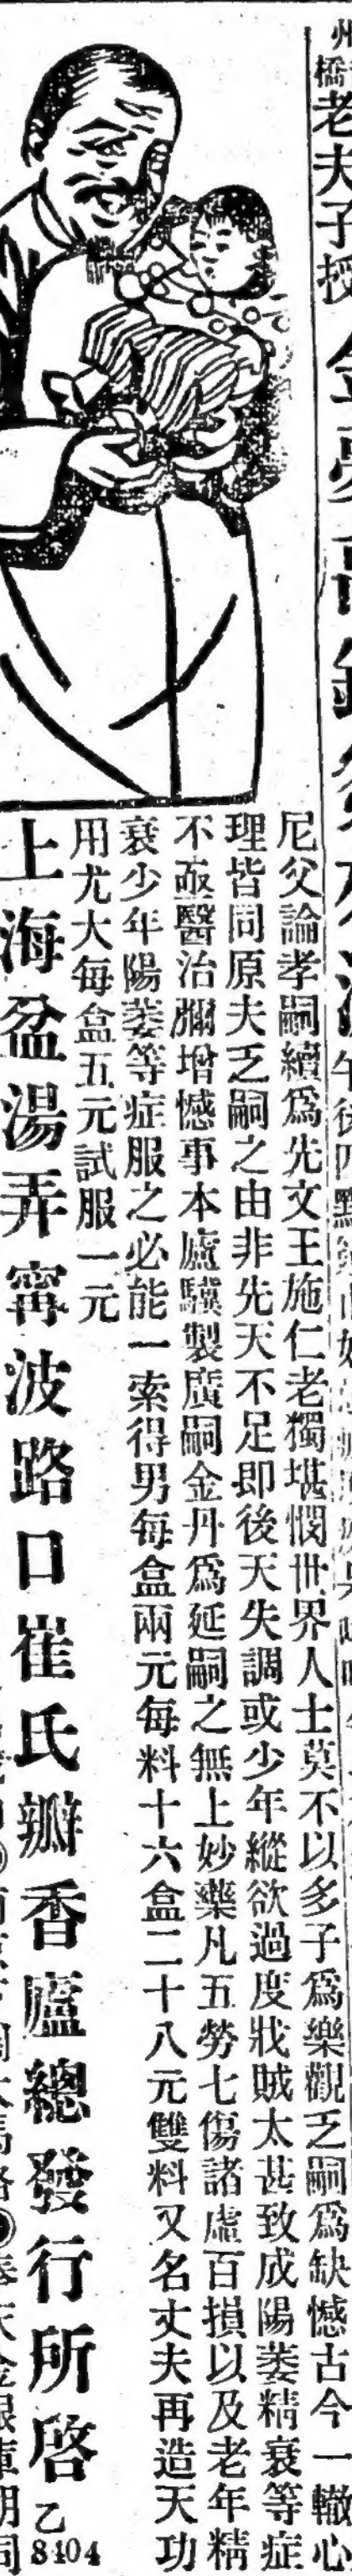 州橋老夫子授
尼父論孝嗣續爲先文王施仁老獨堪憫世界人士莫不以多子爲樂觀乏嗣爲缺憾古今一轍心
理皆同原夫乏嗣之由非先天不足即後天失調或少年縱欲過度戕賊太甚致成陽萎精衰等症
不亟醫治彌增憾事本廬驥製廣嗣金丹爲延嗣之無上妙藥凡五勞七傷諸虛百損以及老年精
衰少年陽萎等症服之必能一索得男每盒兩元每料十六盒二十八元雙料又名丈夫再造天功
用尤大每盒五元試服一元
上海盆湯弄甯波路口崔氏瓣香廬總發行所啓
乙8404